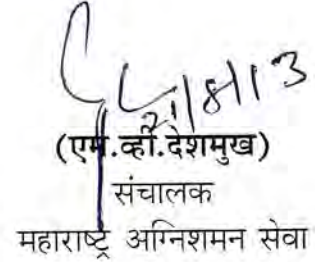 (एम.व्ही.देशमुख)
संचालक
महाराष्ट्र अग्निशमन सेवा